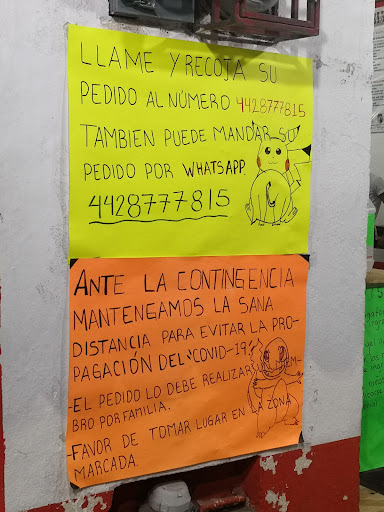 LLAME Y RECOJA SU
PEDIDO AL NÚMERO 4428777815
TAMBIEN PUEDE MANDAR SU
PEDIDO POR WHATSAPP.
4428777815
ANTE LA CONTINGENCIA
MANTENGAMOS LA SANA
DISTANCIA PARA EVITAR LA PRO-
PAGACIÓN DEL "COVID-19"
-EL PEDIDO LO DEBE REALIZAR
BRO POR FAMILIA.
-FAVOR DE TOMAR LUGAR EN LA ZONA
MARCADA.